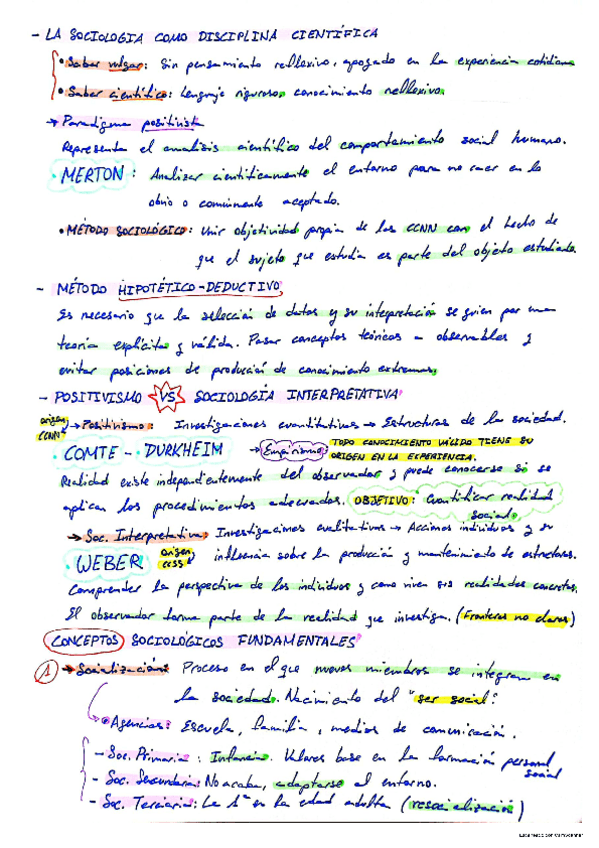 - LA SOCIOLOGIA COMO DISCIPLINA CIENTÍFICA
• Saber vulgar: Sin pensamiento reflexivo, apoyado en la experiencia cotidiana
• Saber científico: Lenguaje riguroso, conocimiento reflexivo.
→ Paradigma positivista
Representa el analisis científico del comportamiento social humano.
· MERTON: Analizar científicamente el entorno para no caer en lo
obvio o comúnmente aceptado.
• MÉTODO SOCIOLÓGICO: Unir objetividad propia de las CCNN con el hecho de
que el sujeto que estudia es parte del objeto estudiado.
- MÉTODO HIPOTÉTICO-DEDUCTIVO
Es necesario que la selección de datos y su interpretación se guíen por una
teoría explícita y válida. Pasar conceptos teóricos a observables y
evitar posiciones de producción de conocimiento extremas.
- POSITIVISMO VS SOCIOLOGÍA INTERPRETATIVA
origen CCNN → Positivismo: Investigaciones cuantitativas → Estructuras de la sociedad.
· COMTE - DURKHEIM → Empirismo: TODO CONOCIMIENTO VÁLIDO TIENE SU
ORIGEN EN LA EXPERIENCIA.
Realidad existe independientemente del observador y puede conocerse si se
aplican los procedimientos adecuados. OBJETIVO: Cuantificar realidad
social.
→ Soc. Interpretativa: Investigaciones cualitativas → Acciones individuos y su
· WEBER origen CCSS influencia sobre la producción y mantenimiento de estructuras.
Comprender la perspectiva de los individuos y como viven sus realidades concretas.
El observador forma parte de la realidad que investiga. (Fronteras no claras)
CONCEPTOS SOCIOLÓGICOS FUNDAMENTALES
1 → Socialización: Proceso en el que nuevos miembros se integran en
la sociedad. Nacimiento del "ser social".
• Agencias: Escuela, familia, medios de comunicación.
- Soc. Primaria: Infancia. Valores base en la formación personal
social
- Soc. Secundaria: No acaba, adaptarse al entorno.
- Soc. Terciaria: La 1ª en la edad adulta (resocialización)